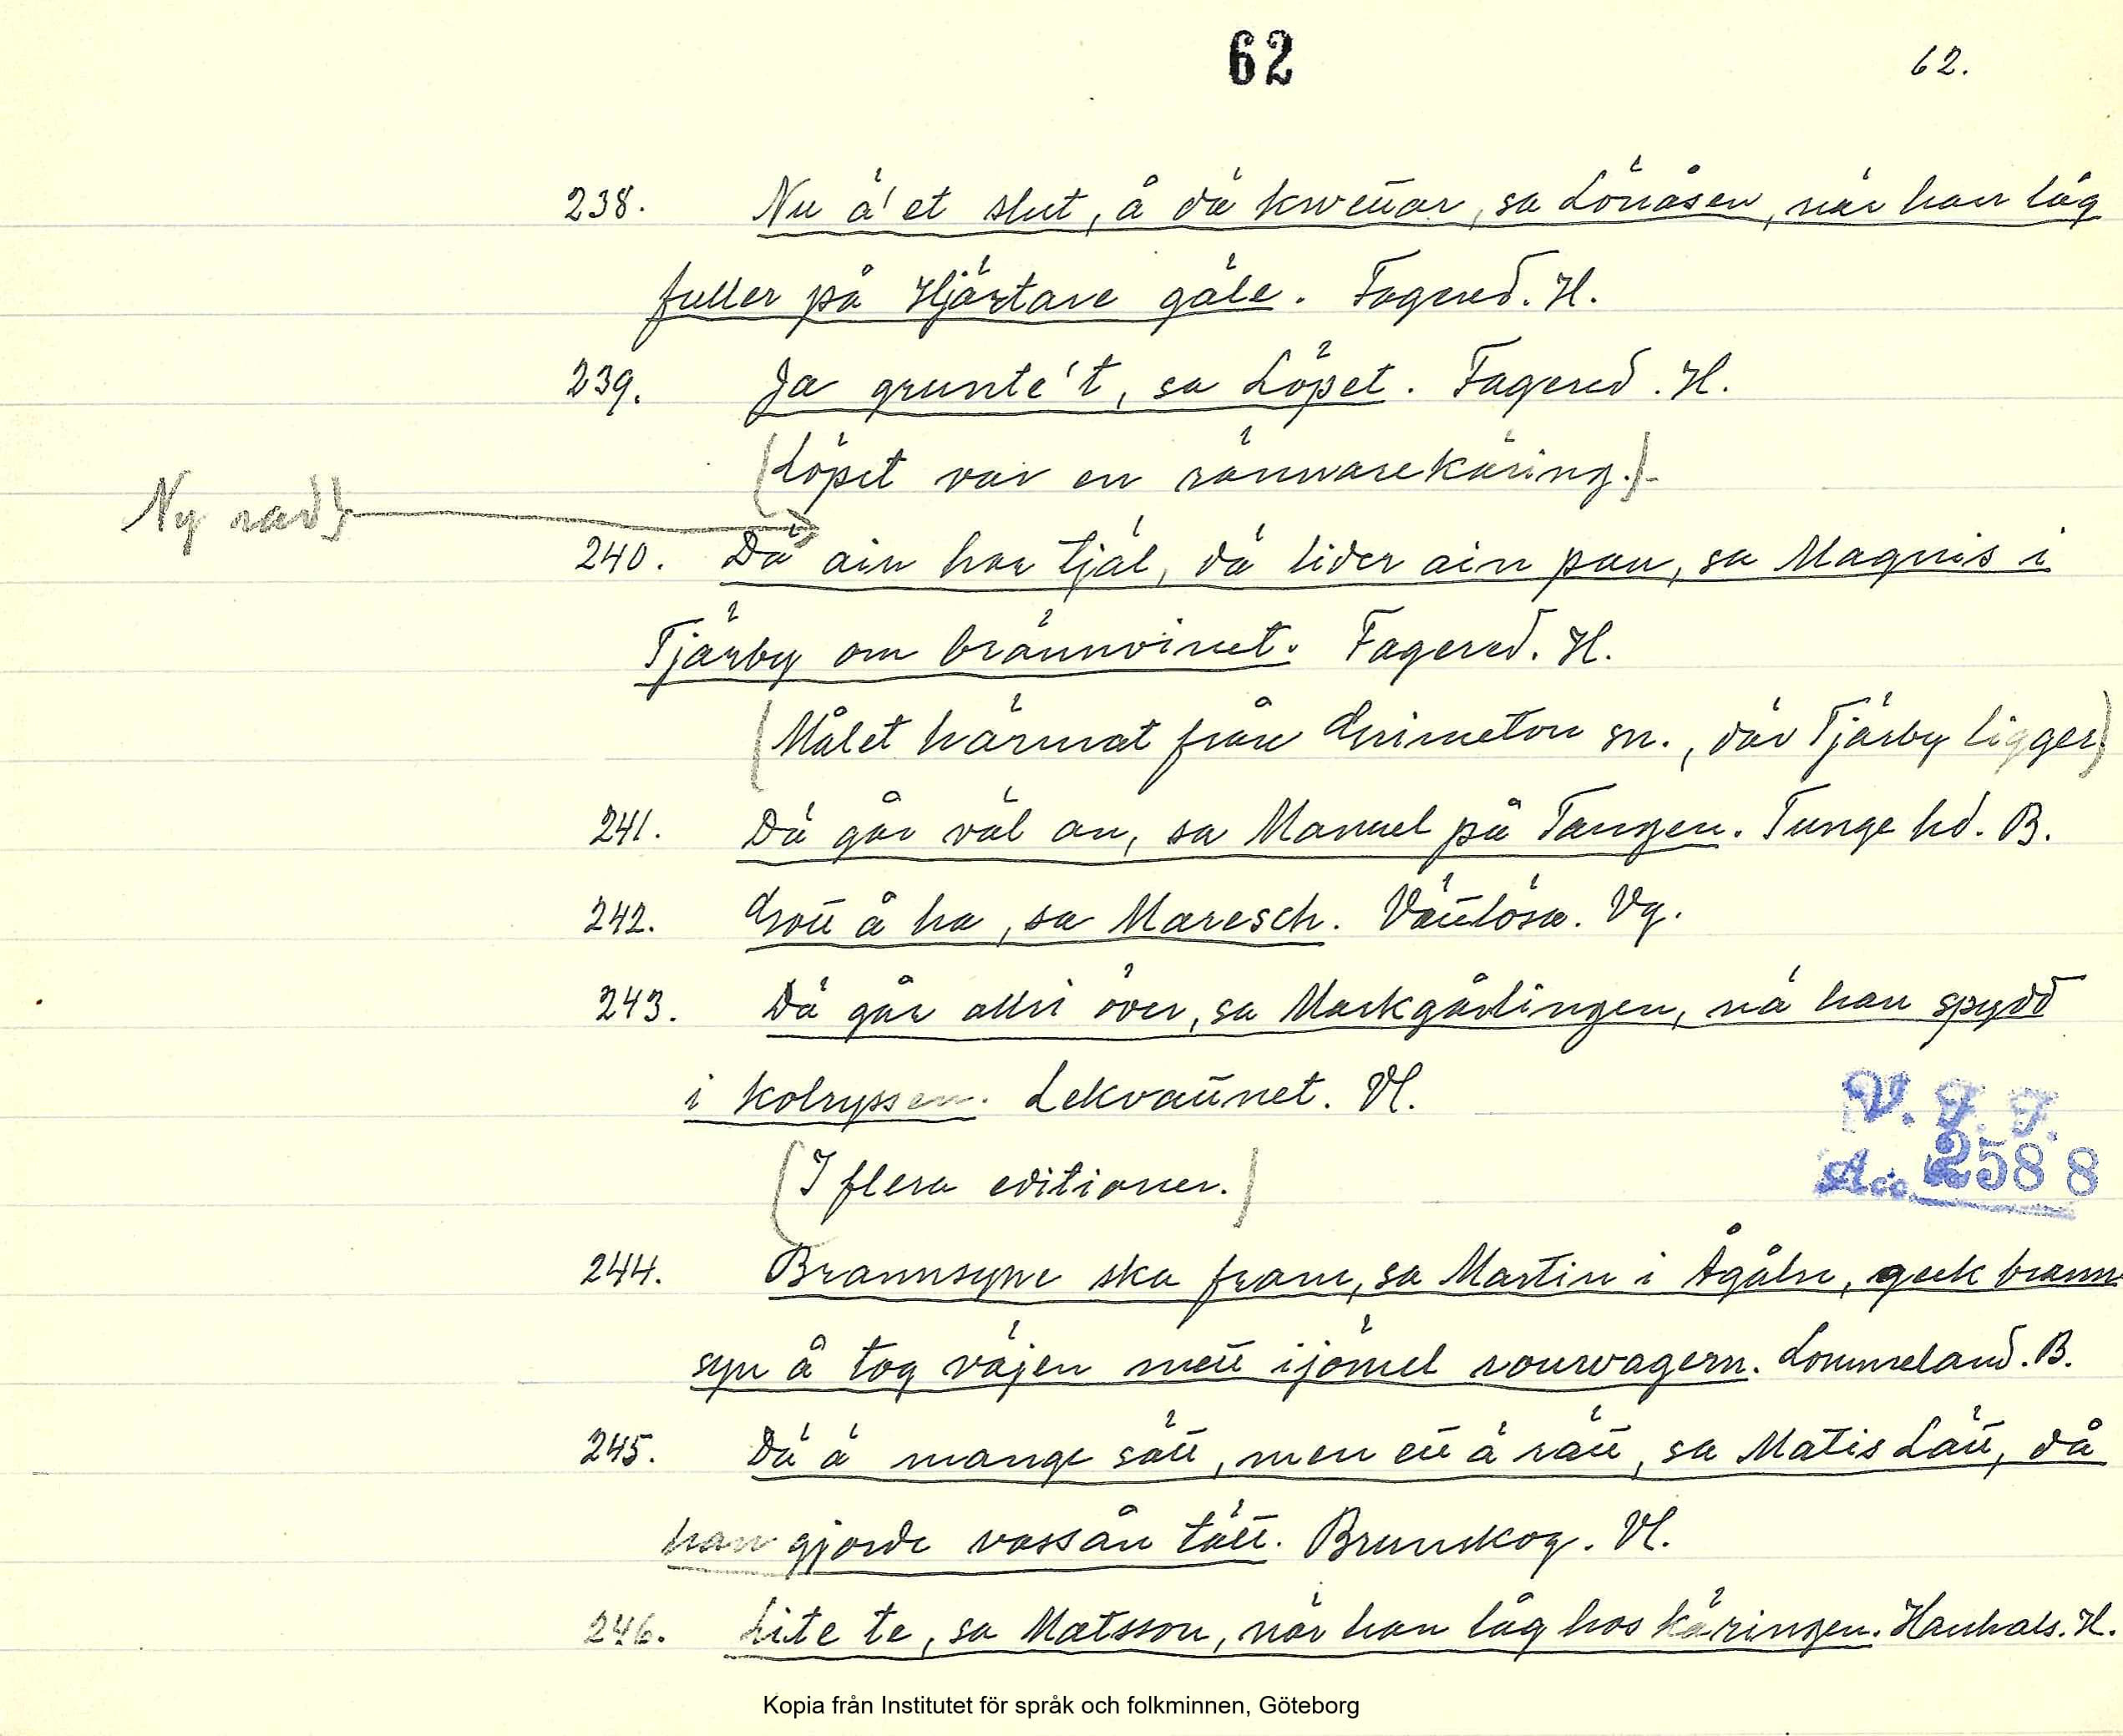 62
62.
238. Nu ä' et slut, å dä kwettar, sa Lönåsen, när han låg
fuller på Hjärtare gäle. Fagered. H.
239. Ja grunte't, sa Löpet. Fagered. H.
(Löpet var en rännarekäring.)
Ny rad
240. Dä ain har tjäl, dä lider ain pau, sa Magnis i
Tjärby om brännvinet. Fagered. H.
(Målet härmat från Grimeton sn., där Tjärby ligger)
241. Dä går väl an, sa Manuel på Tangen. Tunge hd. B.
242. Gott å ha, sa Maresch. Vättlösa. Vg.
243. Dä går allri över, sa Markgårlingen, nä han spydd
i kolryssen. Lekvattnet. Vl.
(I flera editioner.)
V. F. F.
Acc. 2588
244. Brannsyne ska fram, sa Martin i Ågåln, geck brann
syn å tog väjen mett ijömel rourvagern. Lommeland. B.
245. Dä ä mange sätt, men ett ä rätt, sa Matis Lätt, då
han gjorde vassån tätt. Brunskog. Vl.
246. Lite te, sa Matsson, när han låg hos käringen. Hanhals. H.
Kopia från Institutet för språk och folkminnen, Göteborg